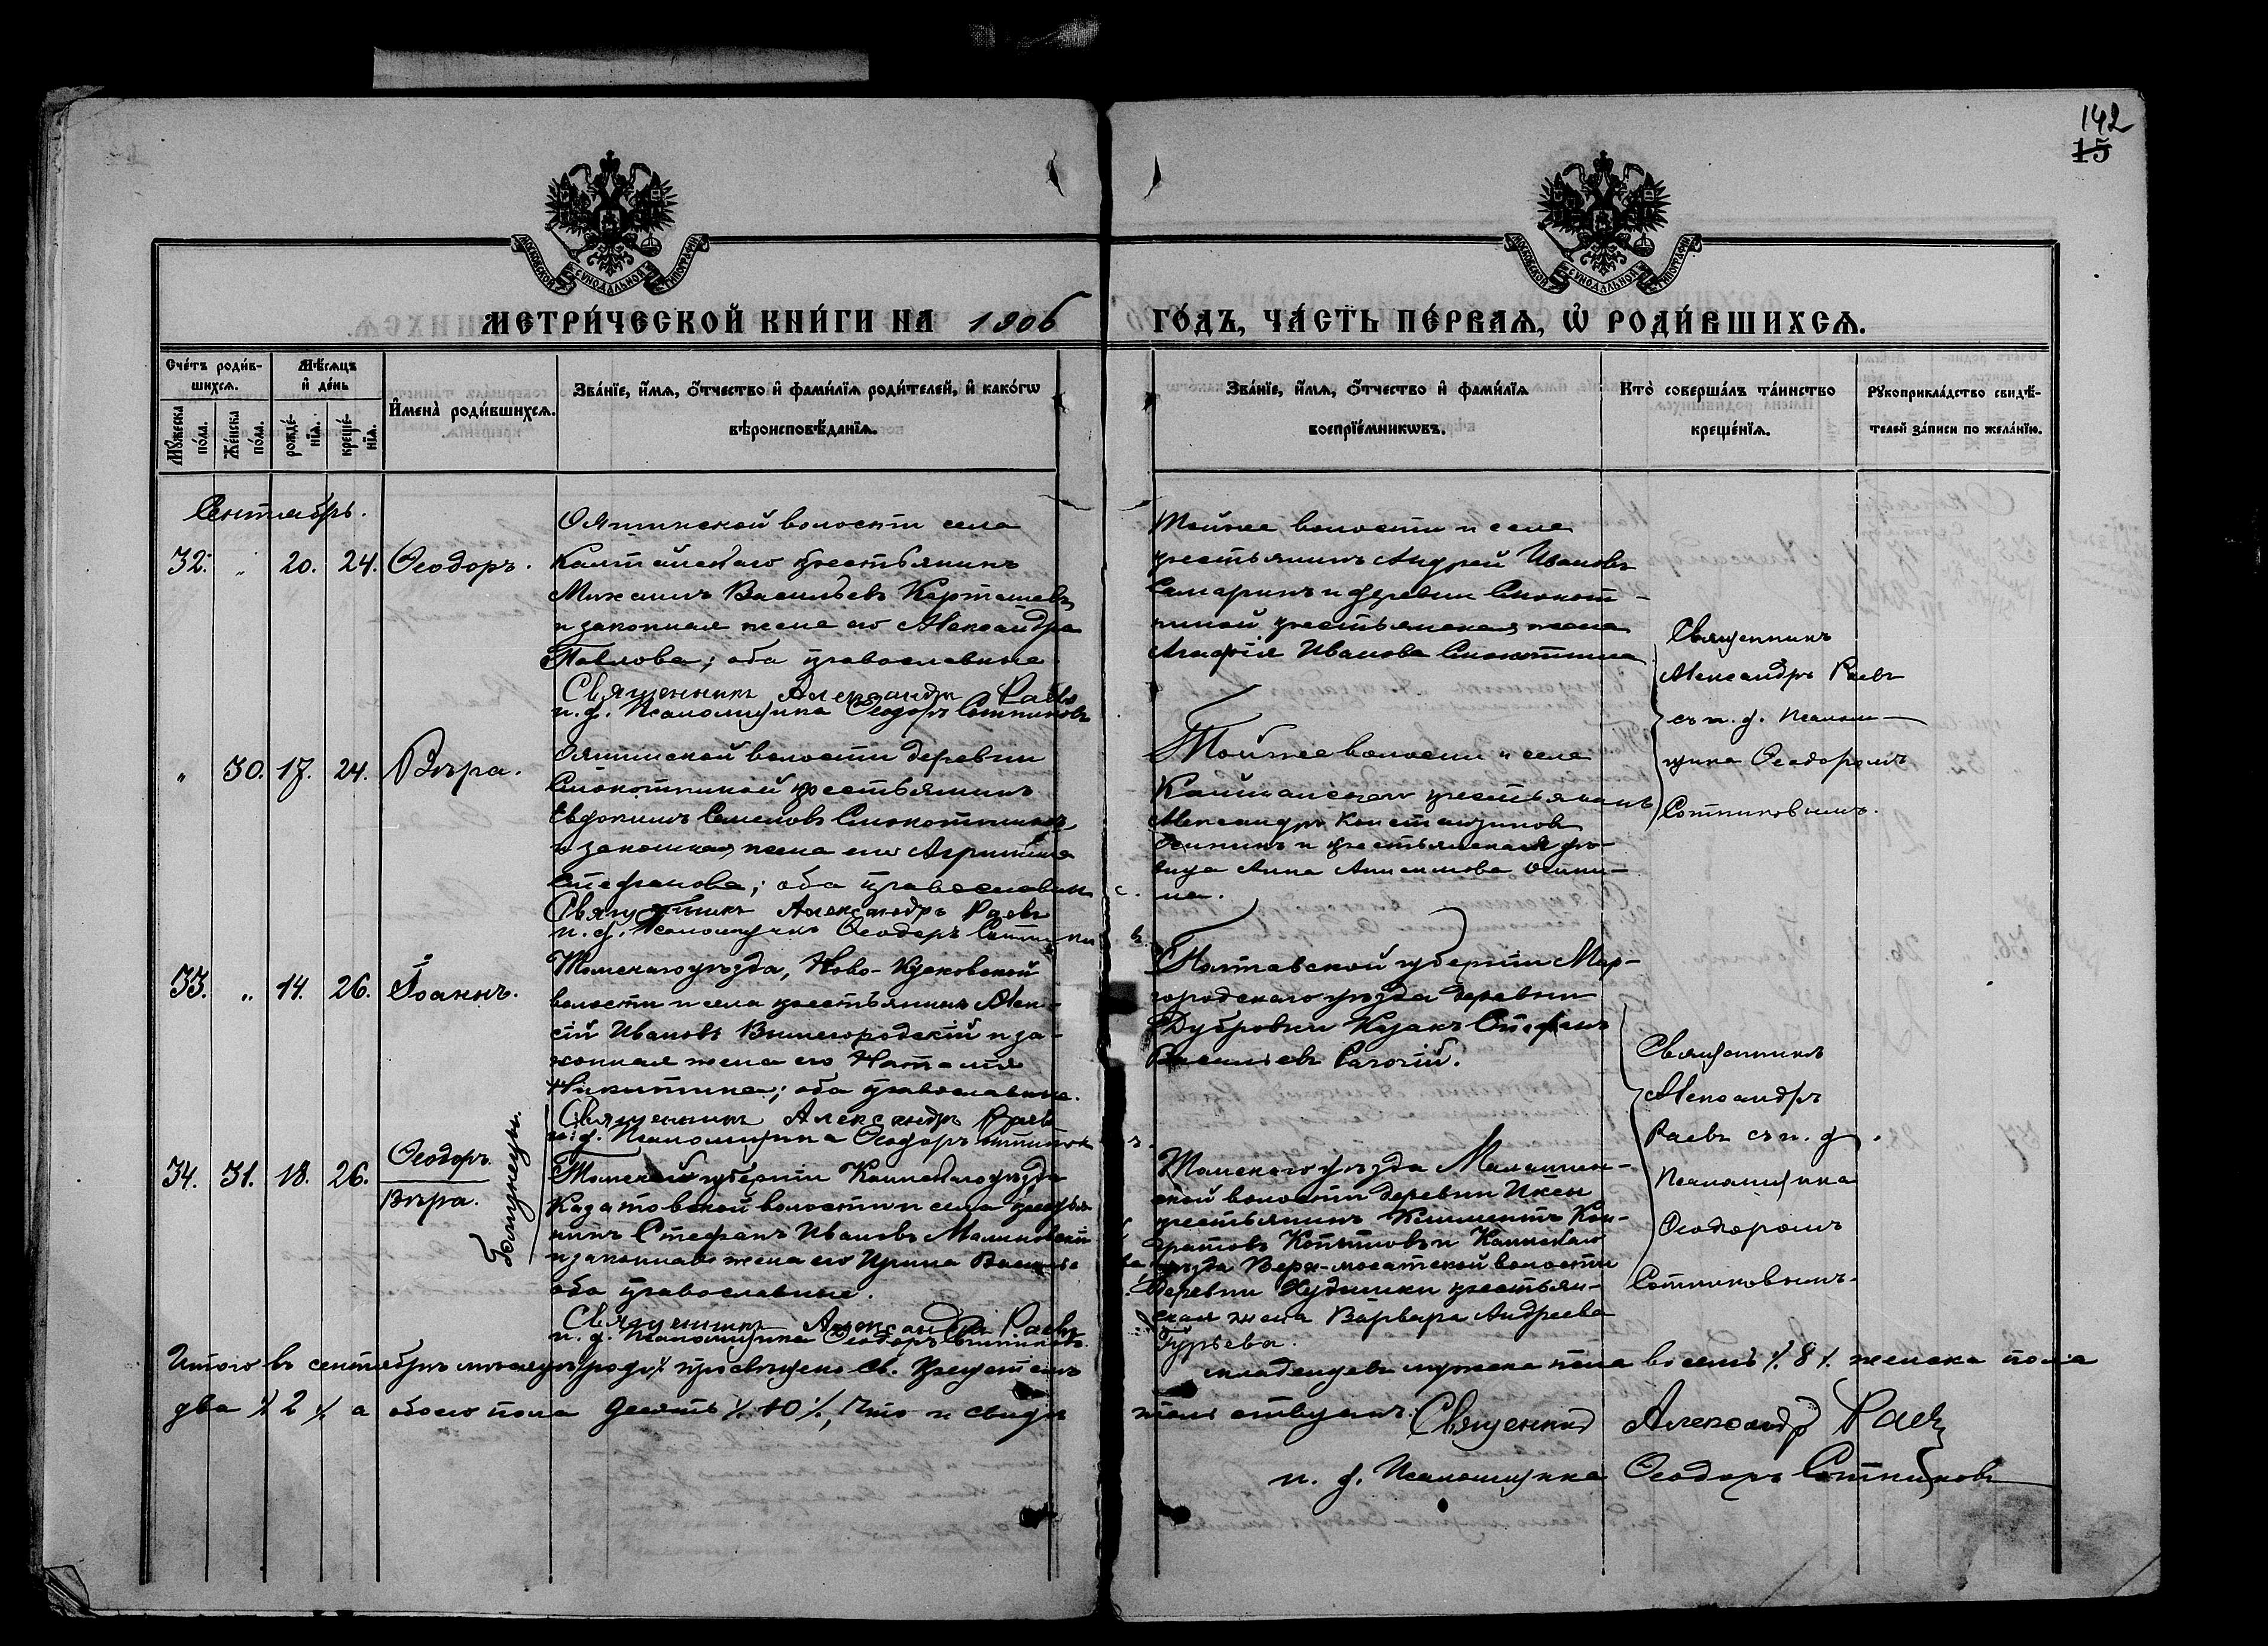 142
15
МОСКОВСКОЙ СѴНОДАЛЬНОЙ ТИПОГРАФІИ
МОСКОВСКОЙ СѴНОДАЛЬНОЙ ТИПОГРАФІИ
МЕТРИ́ЧЕСКОЙ КНИ́ГИ НА 1906
ГО́ДЪ, ЧА́СТЬ ПЕ́РВАѦ, Ѡ҆ РОДИ́ВШИХСѦ.
Сче́тъ роди́в-
шихсѧ.
Мѣ́сѧцъ
и҆ де́нь
Мꙋ́жеска
по́ла.
Же́нска
по́ла.
рожде́-
нїѧ.
креще́-
нїѧ.
И҆мена̀ роди́вшихсѧ.
Зва́нїе, и҆́мѧ, ѻ҆́тчество и҆ фами́лїѧ роди́телей, и҆ како́гѡ
вѣроисповѣ́данїѧ.
Зва́нїе, и҆́мѧ, ѻ҆́тчество и҆ фами́лїѧ
воспрїе́мникѡвъ.
Кто̀ соверша́лъ та́инство
креще́нїѧ.
Рꙋкоприкла́дство свидѣ́-
телей за́писи по жела́нїю.
Сентябрь.
32. " 20. 24. Ѳеодоръ.
Ояшинской волости села
Калтайскаго крестьянинъ
Михаилъ Васильевъ Карташевъ
и законная жена его Александра
Павлова; оба православные
Священникъ Александръ Раевъ
и. д. Псаломщика Ѳеодоръ Сотниковъ
Тойже волости и села
крестьянинъ Андрей Ивановъ
Самаринъ и деревни Смокот-
ниной крестьянская жена
Агафія Иванова Смокотнина
Священникъ
Александръ Раевъ
съ и. д. Псалом-
щика Ѳеодоромъ
Сотниковымъ.
" 30. 17. 24. Вѣра.
Ояшинской волости деревни
Смокотниной крестьянинъ
Евдокимъ Семеновъ Смокотнинъ
и законная жена его Агрипина
Стефанова; оба православные
Священникъ Александръ Раевъ
и. д. Псаломщика Ѳеодоръ Сотников
Тойже волости и села
крестьянинъ
Александръ Константиновъ
Осининъ и крестьянская дѣ-
вица Анна Анисимова Осини-
на.
33. " 14. 26. Іоаннъ.
Томскаго уѣзда, Ново-Кусковской
волости и села крестьянинъ Алек-
сій Ивановъ Вышегородскій и за-
конная жена его Наталія
Никитина; оба православные.
Священникъ Александръ Раевъ
и. д. Псаломщика Ѳеодоръ Сотников
Полтавской губерніи Мир-
городскаго уѣзда деревни
Дубровки Казакъ Стефанъ
Васильевъ
Священникъ
Александръ
Раевъ съ и. д.
Псаломщика
Ѳеодоромъ
Сотниковымъ.
34. 31. 18. 26. Ѳеодоръ.
Вѣра.
Близнецы.
Томской губерніи Каинскаго уѣзда
Казатовской волости и села крестья-
нинъ Стефанъ Ивановъ Малиновскій
и законная жена его Ирина
оба православные.
Священникъ Александръ Раевъ
и. д. Псаломщика Ѳеодоръ Сотниковъ
Томскаго уѣзда
ской волости деревни Иксы
крестьянинъ Климентъ Кон-
дратовъ Копыловъ и Каинскаго
уѣзда волости
деревни крестьян-
ская жена Варвара Андреева
Гурьева.
Итого въ сентябрѣ мѣсяцѣ просвѣщено Св. Крещеніемъ младенцевъ мужска пола восемь /8/ женска пола
два /2/ а обоего пола десять /10/, что и свидѣтельствуемъ: Священникъ Александръ Раевъ
и. д. Псаломщика Ѳеодоръ Сотниковъ